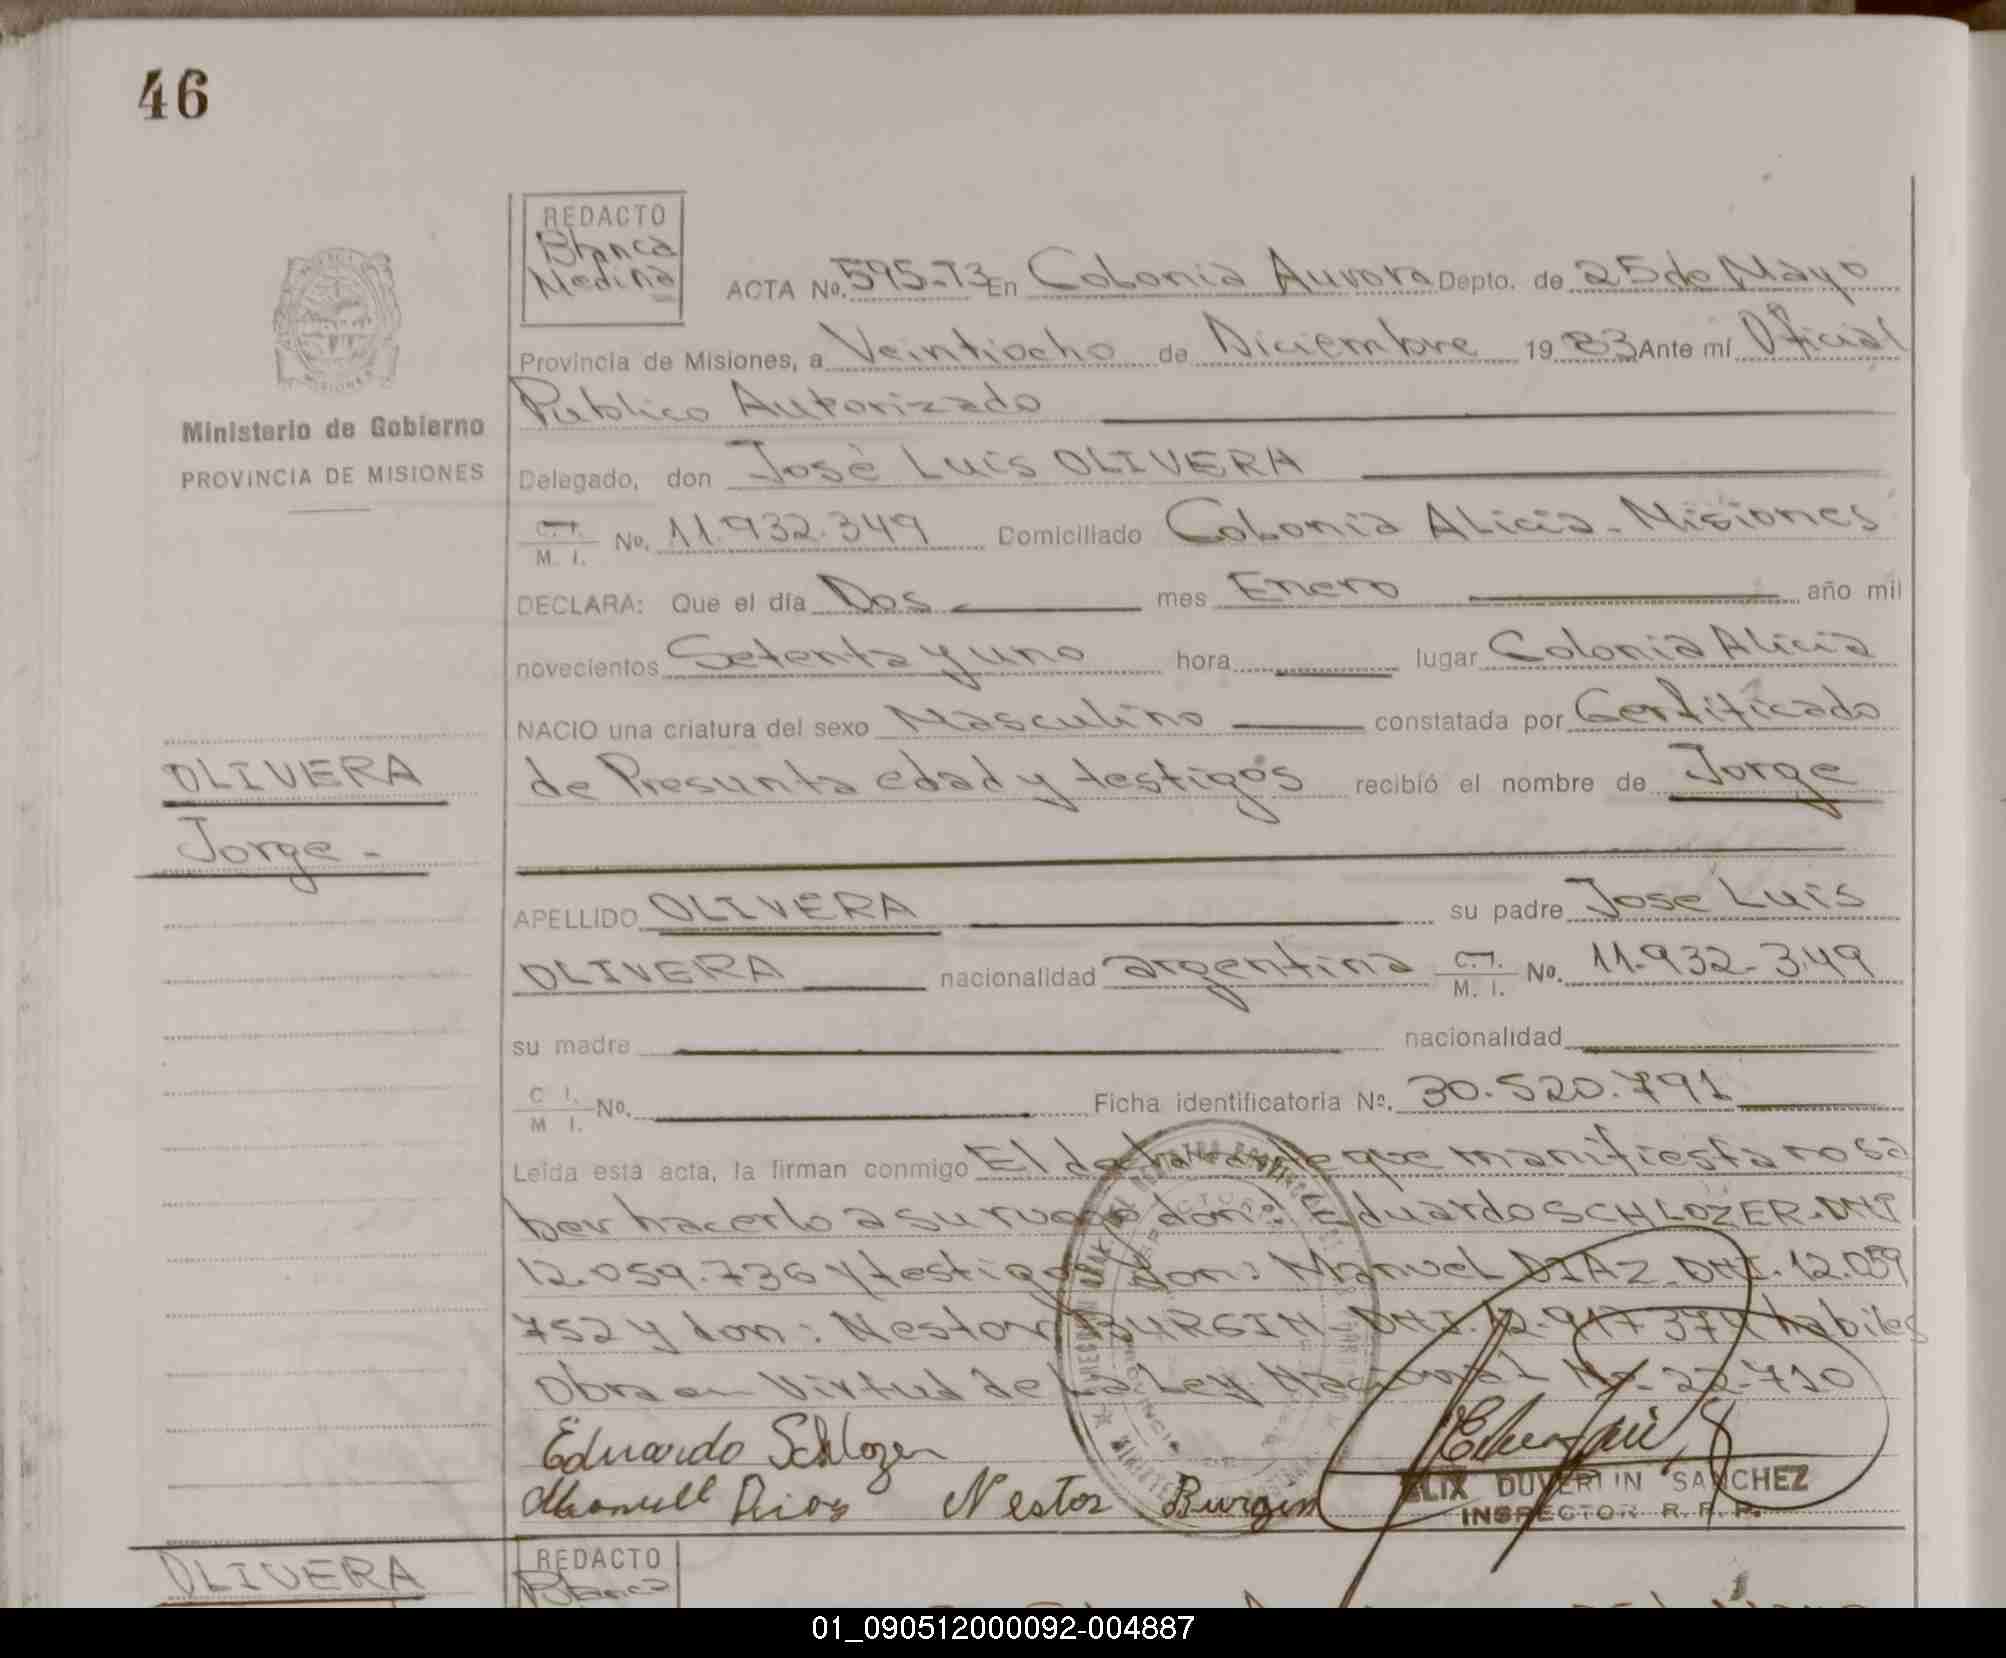 46
REDACTO
Blanca
Medina
ACTA No. 595-T3 En Colonia Aurora Depto. de 25 de Mayo
Provincia de Misiones, a Veintiocho de Diciembre 1983 Ante mí Oficial
Publico Autorizado
Ministerio de Gobierno
PROVINCIA DE MISIONES
Delegado, don José Luis OLIVERA
C.I. M. I. No. 11.932.349 Domiciliado Colonia Alicia - Misiones
DECLARA: Que el día Dos mes Enero año mil
novecientos Setenta y uno hora lugar Colonia Alicia
NACIO una criatura del sexo Masculino constatada por Certificado
de Presunta edad y testigos recibió el nombre de Jorge
OLIVERA
Jorge -
APELLIDO OLIVERA su padre Jose Luis
OLIVERA nacionalidad argentina C.I. M. I. No. 11.932.349
su madre nacionalidad
C I. M I. No. Ficha identificatoria Nº. 30.520.791
Leída esta acta, la firman conmigo El declarante que manifiesta no sa
ber hacerlo a su ruego don: Eduardo SCHLOZER. DNI
12.059.736 y testigos don: Manuel DIAZ. DNI. 12.059
752 y don: Nestor BURGIN DNI. 12.917 374 habiles
Obra en Virtud de La Ley Nacional No. 22-710
Eduardo Schlozer
Manuell Dias Nestor Burgin
ELIX DUVERLIN SANCHEZ
INSPECTOR R. P. P.
OLIVERA
REDACTO
Blanca
01_090512000092-004887